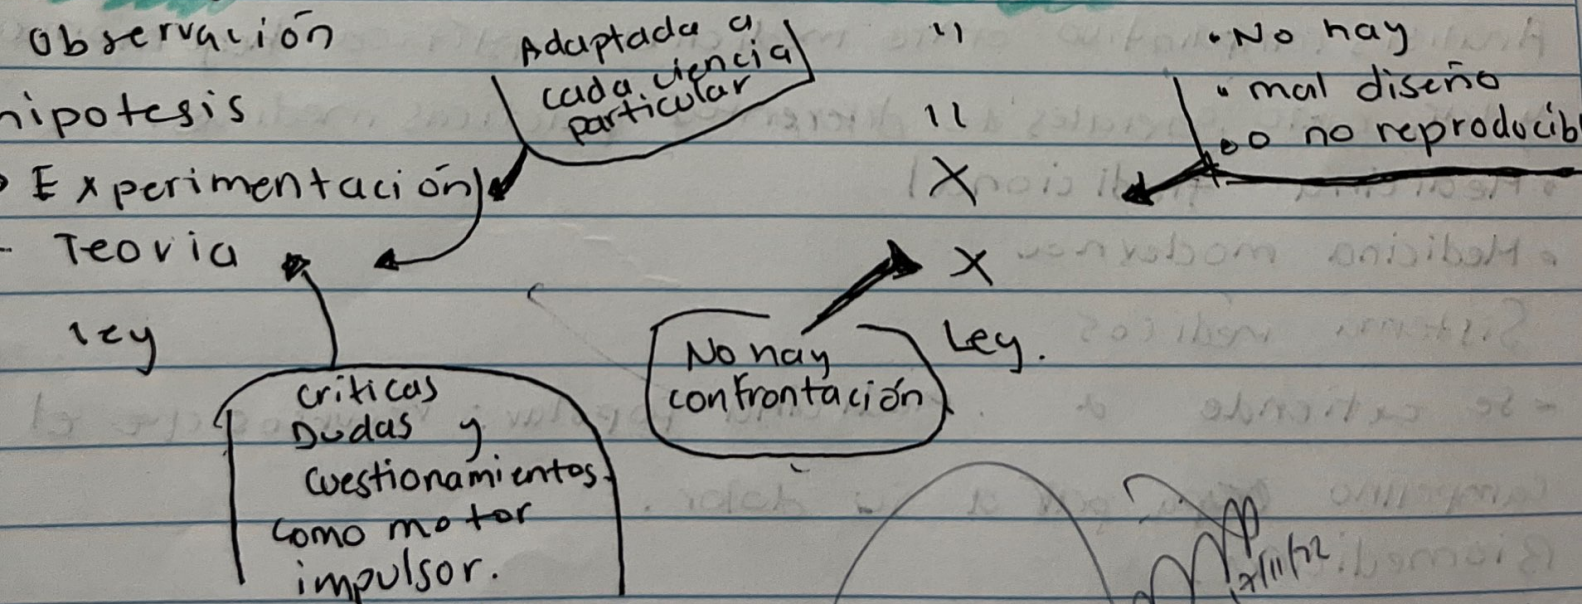 Observación
hipotesis
Experimentación
Teoria
ley
Adaptada a
cada ciencia
particular
criticas
Dudas y
cuestionamientos
como motor
impulsor.
"
"
X
X
Ley.
No hay
confrontación
• No hay
• mal diseño
• o no reproducib